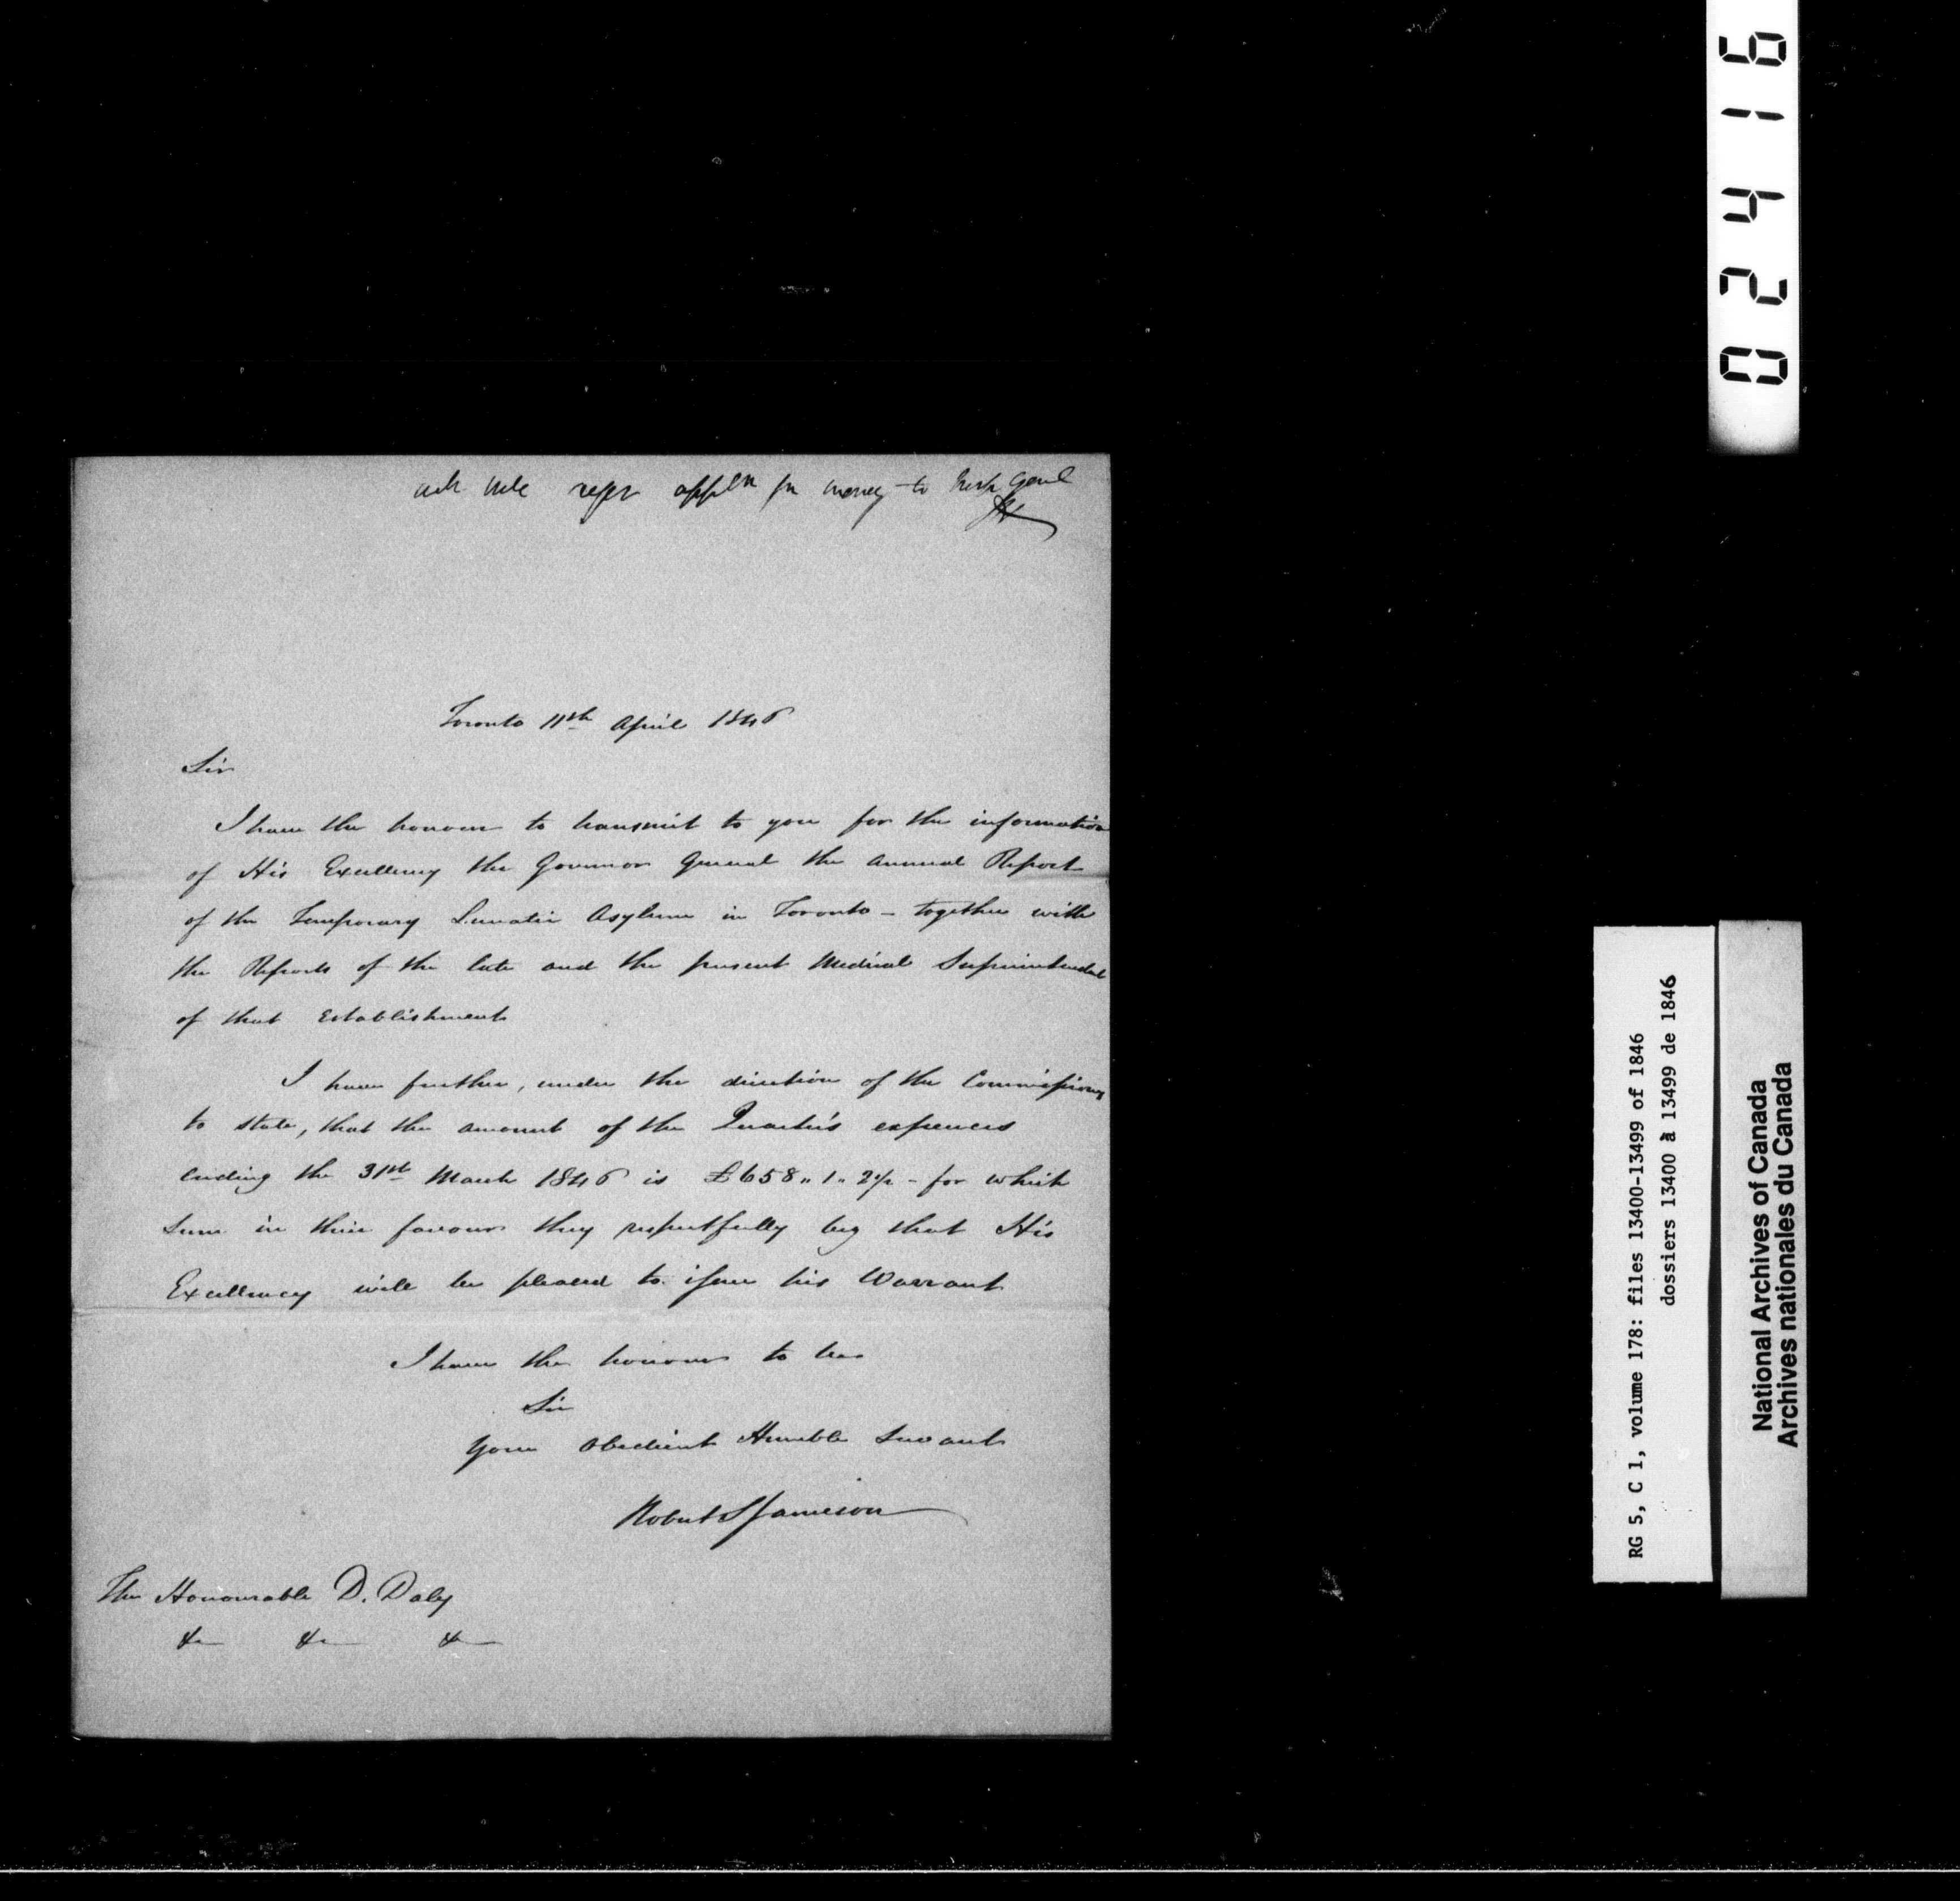 refer appln for money to Insp Genl
Toronto 11th April 1846
Sir
I have the honour to transmit to you for the information
of His Excellency the Governor General the Annual Report
of the Temporary Lunatic Asylum in Toronto - together with
the Reports of the late and the present Medical Superintendent
of that Establishment
I have further, under the direction of the Commissioners
to state, that the amount of the Quarter's expences
ending the 31st March 1846 is £658 " 1 " 2½ - for which
sum in their favour they respectfully beg that His
Excellency will be pleased to issue his Warrant
I have the honour to be
Sir
Your Obedient Humble Servant
Robert S Jameson
The Honourable D. Daly
&c &c &c
02416
RG 5, C 1, volume 178: files 13400-13499 of 1846
dossiers 13400 à 13499 de 1846
National Archives of Canada
Archives nationales du Canada